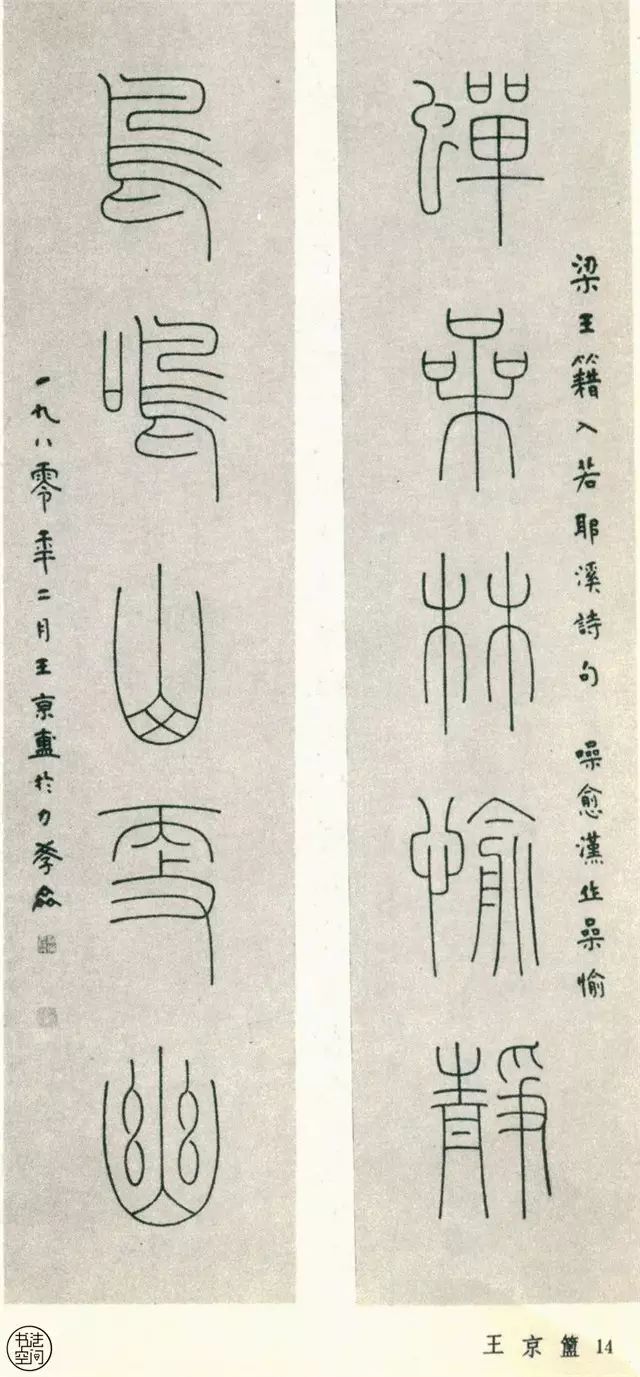 梁王籍入若耶溪詩句 噪愈漢作喿愉
蟬喿林愉靜
鳥鳴山更幽
一九八零年二月王京盙於力學盦
王京簠 14
书法空间